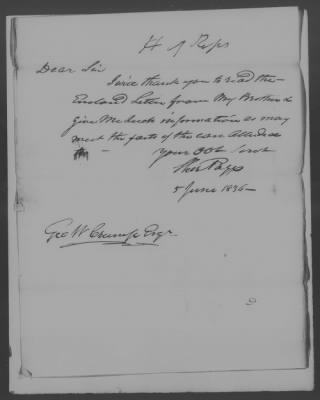 H of Reps
Dear Sir
I will thank you to read the
Enclosd Letter from My Brother &
give Me such information as may
meet the facts of the case
Your Obt Servt
5 June 1836-
Geo W Crump Esqr